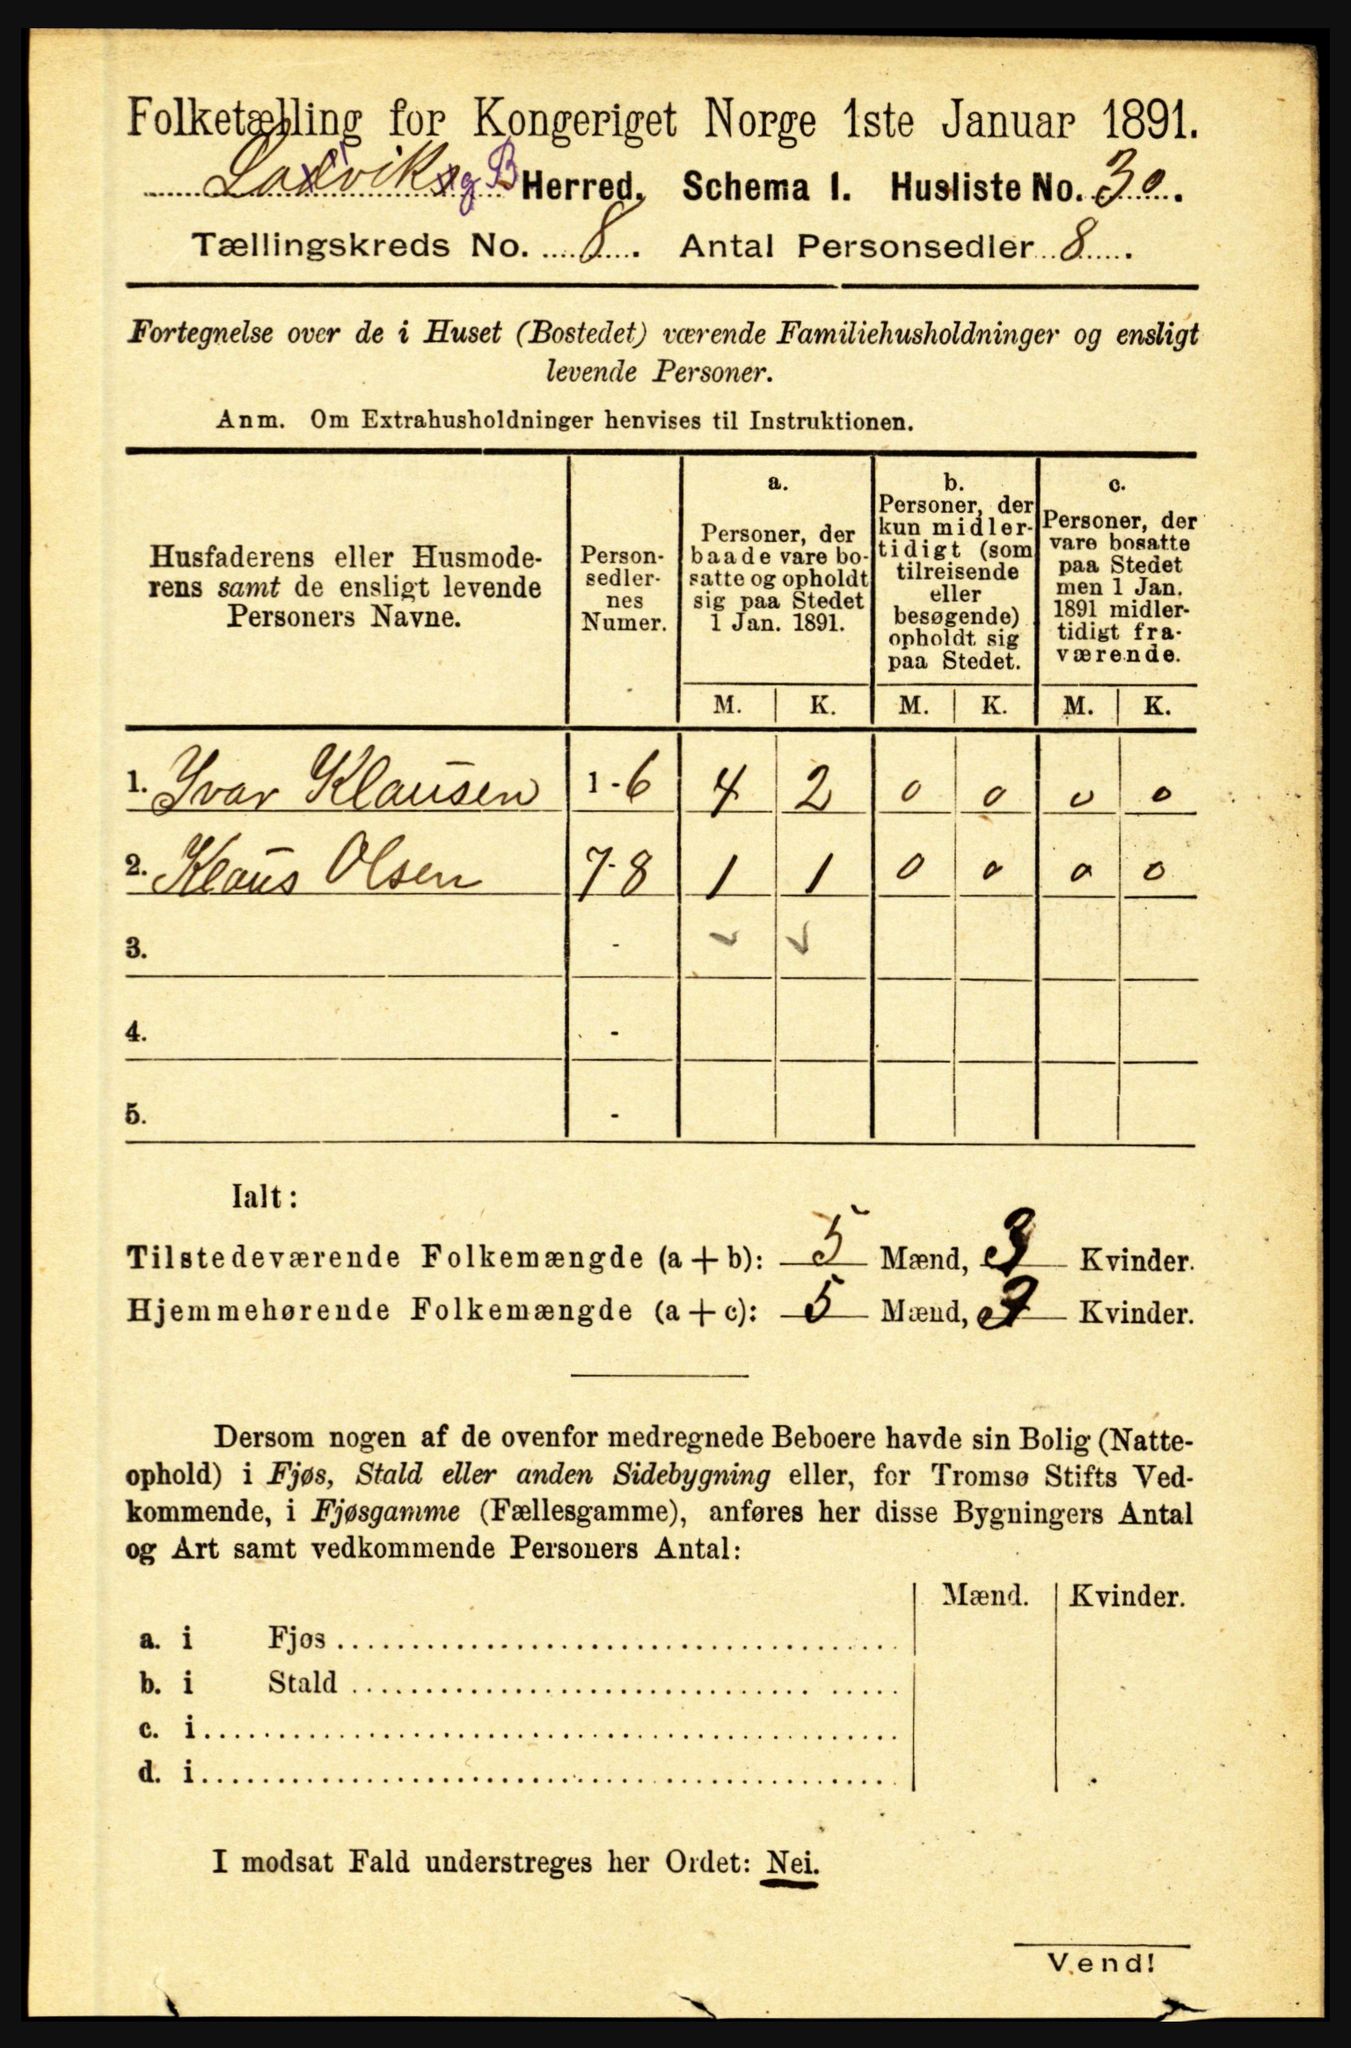 Folketælling for Kongeriget Norge 1ste Januar 1891.
Herred. Schema 1. Husliste No. 30.
Tællingskreds No. 8. Antal Personsedler 8.
Fortegnelse over de i Huset (Bostedet) værende Familiehusholdninger og ensligt
levende Personer.
Anm. Om Extrahusholdninger henvises til Instruktionen.
Husfaderens eller Husmode-
rens samt de ensligt levende
Personers Navne.
Person-
sedler-
nes
Numer.
a.
Personer, der
baade vare bo-
satte og opholdt
sig paa Stedet
1 Jan. 1891.
b.
Personer, der
kun midler-
tidigt (som
tilreisende
eller
besøgende)
opholdt sig
paa Stedet.
c.
Personer, der
vare bosatte
paa Stedet
men 1 Jan.
1891 midler-
tidigt fra-
værende.
M. K. M. K. M. K.
1. Ivar Klausen 1-6 4 2 0 0 0 0
2. Klaus Olsen 7-8 1 1 0 0 0 0
3. -
4. -
5. -
Ialt:
Tilstedeværende Folkemængde (a + b): 5 Mænd, 3 Kvinder.
Hjemmehørende Folkemængde (a + c): 5 Mænd, 3 Kvinder.
Dersom nogen af de ovenfor medregnede Beboere havde sin Bolig (Natte-
ophold) i Fjøs, Stald eller anden Sidebygning eller, for Tromsø Stifts Ved-
kommende, i Fjøsgamme (Fællesgamme), anføres her disse Bygningers Antal
og Art samt vedkommende Personers Antal:
Mænd. Kvinder.
a. i Fjøs
b. i Stald
c. i
d. i
I modsat Fald understreges her Ordet: Nei.
Vend!